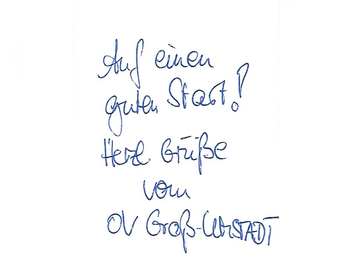 Auf einen
guten Start!
Herzl Grüße
vom
OV Groß-Umstadt